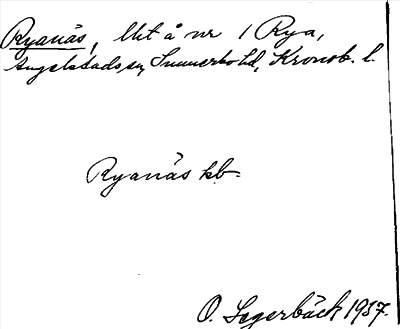 Ryanäs, lht å nr 1 Rya,
Angelstads sn, Sunnerbo hd, Kronob. l.
Ryanäs kb.
O. Segerbäck 1937.